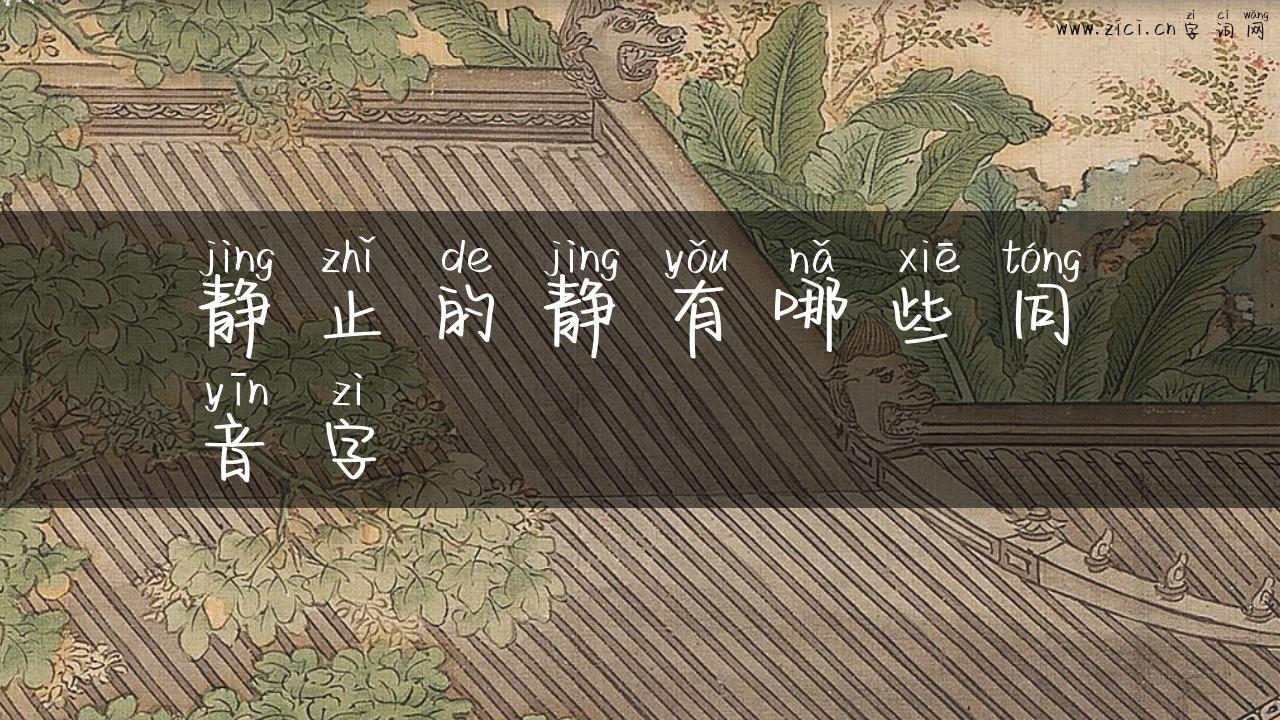 zì cí wǎng
www.zici.cn 字 词 网
jìng zhǐ de jìng yǒu nǎ xiē tóng
静 止 的 静 有 哪 些 同
yīn zì
音 字